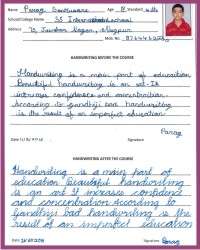 Name : Parag Sawusare Age 18 Standard 12th
School/College Name SS International School
Address 73, Jeevan Nagar, Nagpur
Mob. No.
HANDWRITING BEFORE THE COURSE
Handwriting is a main part of education
Beautiful handwriting is an art. It
increases confidence and concentration.
According to gandhiji bad handwriting
is the result of an imperfect education.
Parag
Date Signature
HANDWRITING AFTER THE COURSE
Handwriting is a main part of
education Beautiful handwriting
is an art It increases confidence
and concentration According to
Gandhiji bad handwriting is the
result of an imperfect education
Date Signature Parag